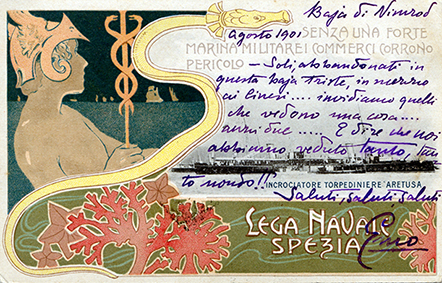 Baja di Nimrod
Agosto 1901
SENZA UNA FORTE
MARINA MILITARE I COMMERCI CORRONO
PERICOLO
— Soli, abbandonati in
questa baja triste, in mezzo
ai Cinesi.... invidiamo quelli
che vedono una cosa....
anzi due .... E dire che noi
abbiamo veduto tanto, tan
to mondo!!
INCROCIATORE TORPEDINIERE ARETUSA
Saluti, saluti, saluti
LEGA NAVALE
SPEZIA